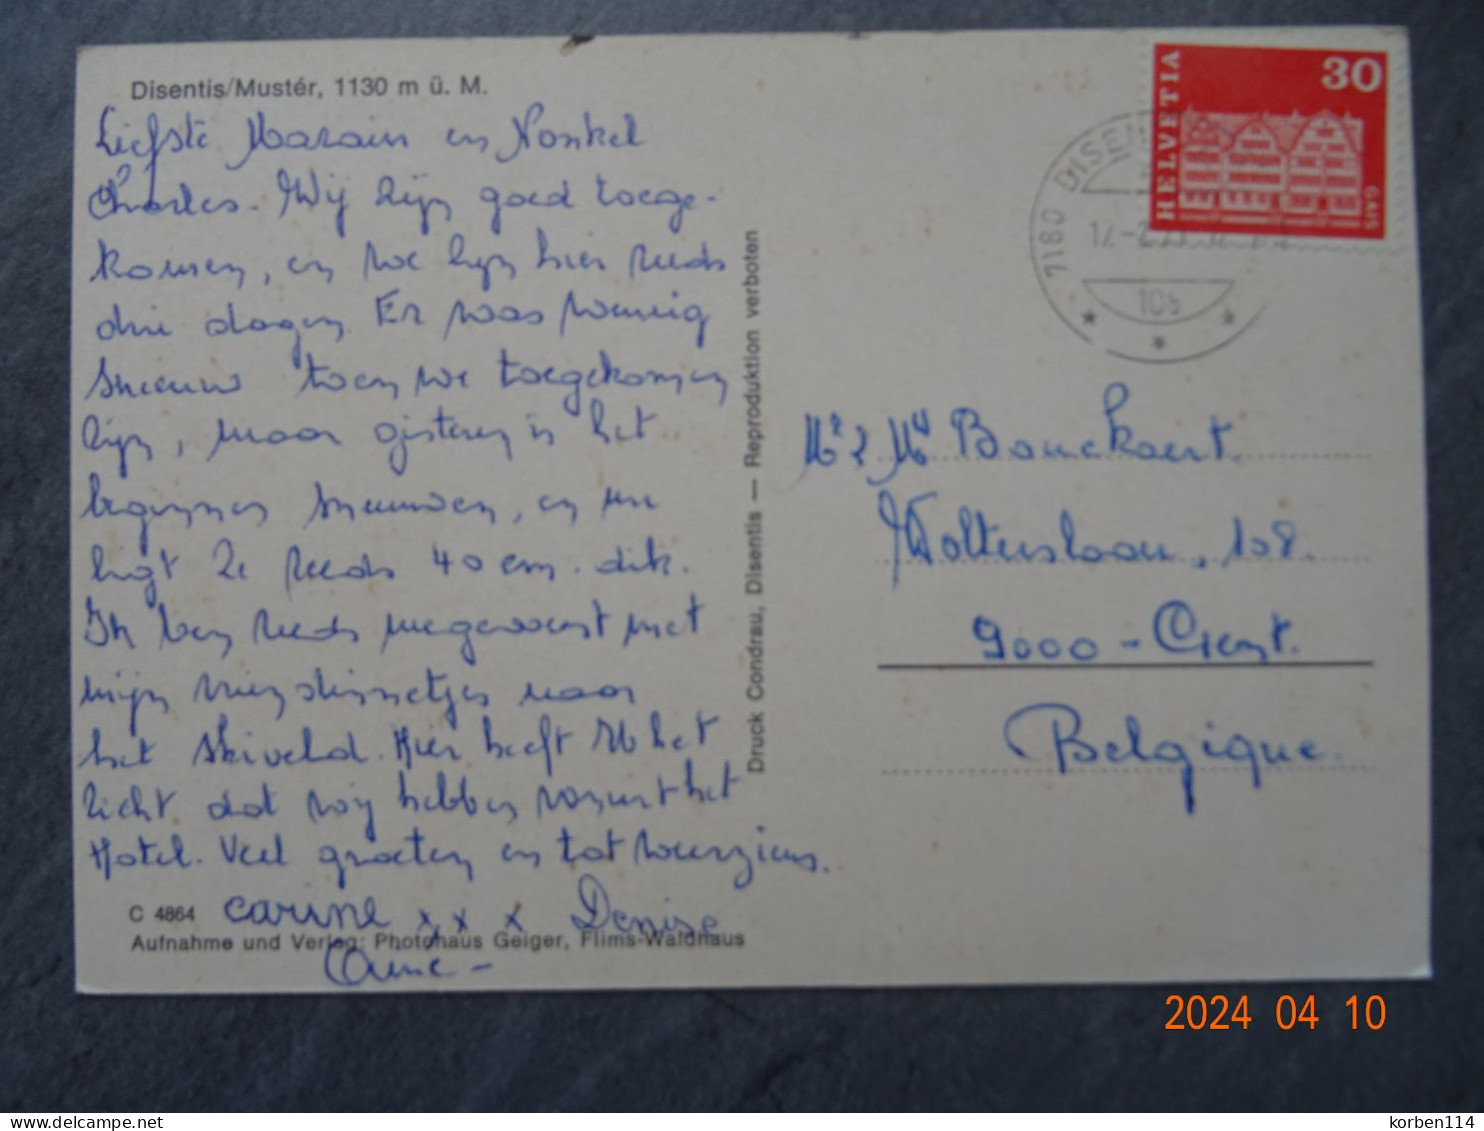 Disentis/Mustér, 1130 m ü. M.
Liefste en Nonkel
Charles. Wij zijn goed toege-
komen, en we zijn hier reeds
drie dagen. Er was weinig
sneeuw toen we toegekomen
zijn, maar gisteren is het
beginnen sneeuwen, en nu
ligt ze reeds 40 cm. dik.
Ik ben reeds meegeweest met
mijn vriendinnetjes naar
het skiveld. Hier heeft U het
zicht dat wij hebben vanuit het
Hotel. Veel groeten en tot weerziens.
carine x x x Denise
C 4864
Aufnahme und Verlag: Photohaus Geiger, Flims-Waldhaus
Druck Condrau, Disentis — Reproduktion verboten
HELVETIA
30
GAIS
7180 DISENTIS
105
Mr & Me Bouckaert.
Woltersloan, 108.
9000 - Gent.
Belgique.
2024 04 10
korben114